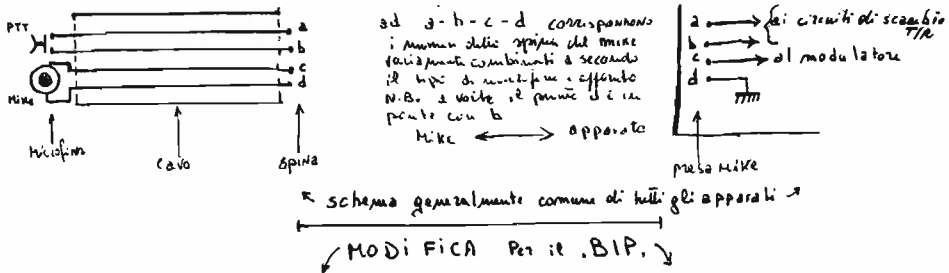 PTT
Mike
a
b
c
d
Microfono
cavo
SPINA
ad a-b-c-d corrispondono
i numeri della spina del mike
variamente combinati a secondo
il tipo di microfono e apparato
N.B. a volte il punto d è in
ponte con b
Mike ⟷ apparato
a
b
c
d
ai circuiti di scambio
T/R
al modulatore
presa Mike
schema generalmente comune di tutti gli apparati
MODIFICA Per il .BIP.